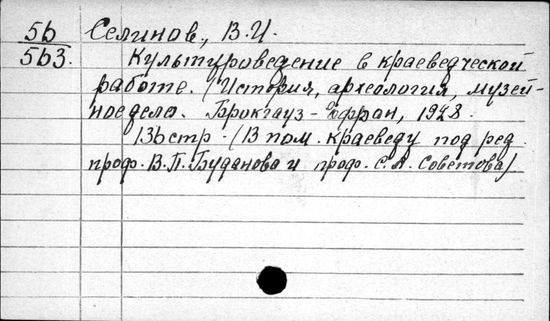 5b Селинов, В.И.
5b3. Культуроведение в краеведческой
работе. (История, археология, музей-
ное дело. Брокгауз-Ефрон, 1928.
13b стр. (В пом. краеведу под ред.
проф. В.П. Буданова и проф. С.А. Советова)